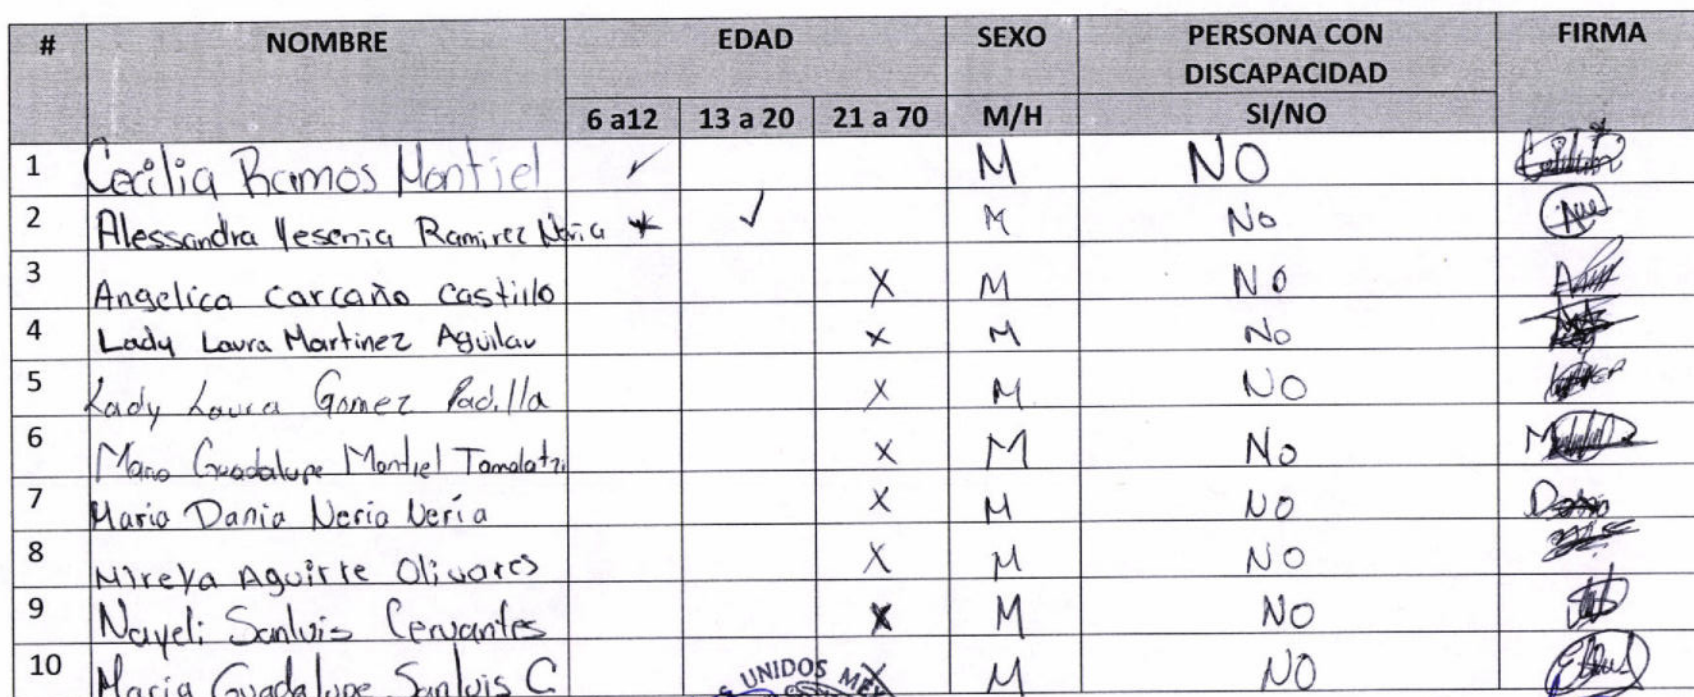 # NOMBRE EDAD SEXO PERSONA CON DISCAPACIDAD FIRMA
6 a12 13 a 20 21 a 70 M/H SI/NO
1 Cecilia Ramos Montiel ✓ M NO
2 Alessandra Yesenia Ramirez Neria ✓ M No
3 Angelica Carcaño Castillo X M NO
4 Lady Laura Martinez Aguilar X M No
5 Lady Laura Gomez Padilla X M NO
6 Maria Guadalupe Montiel Tamalatzi X M No
7 Maria Dania Neria Nería X M NO
8 Mireya Aguirre Olivares X M NO
9 Nayeli Sanluis Cervantes X M NO
10 Maria Guadalupe Sanluis C X M NO
UNIDOS MEX